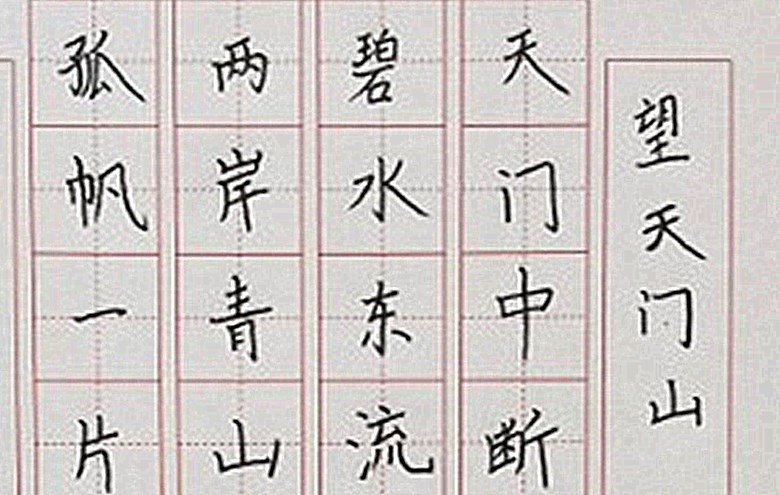 望天门山
天门中断
碧水东流
两岸青山
孤帆一片